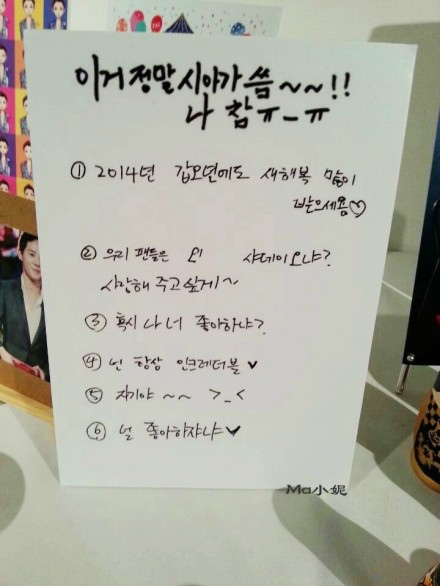 이거 정말 시아가 씀~~!!
나 참 ㅠ_ㅠ
① 2014년 갑오년에도 새해복 많이
받으세욤♡
② 우리 팬들은 왜 샤데이오냐?
사랑해 주고싶게~
③ 혹시 나 너 좋아하냐?
④ 넌 항상 인크레더블♥
⑤ 자기야~~ >_<
⑥ 널 좋아하쟈냐♥
Ma小妮